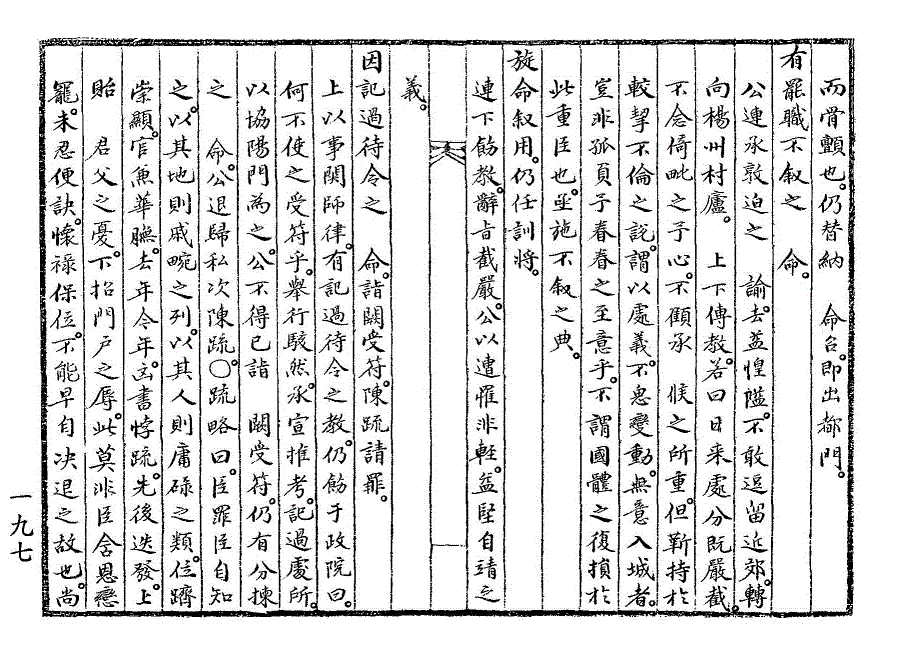 而骨顫也。仍替納　命召。卽出都門。
有罷職不叙之　命。
公連承敦迫之　諭。去益惶隘。不敢逗留近郊。轉
向楊州村廬。　上下傳敎。若曰日來處分旣嚴截。
不念倚毗之予心。不顧承　候之所重。但靳持於
較挈不倫之說。謂以處義。不思變動。無意入城者。
豈非孤負予眷眷之至意乎。不謂國體之復損於
此重臣也。亟施不叙之典。
旋命叙用。仍任訓將。
連下飭敎。辭旨截嚴。公以遭罹非輕。益堅自靖之
義。
因記過待令之　命。詣闕受符。陳疏請罪。
上以事關師律。有記過待令之敎。仍飭于政院曰。
何不使之受符乎。擧行駭然。承宣推考。記過處所。
以協陽門爲之。公不得已詣　闕受符。仍有分揀
之　命。公退歸私次陳疏。○疏略曰。臣罪臣自知
之。以其地則戚畹之列。以其人則庸碌之類。位躋
崇顯。官魚華膴。去年今年。凶書悖疏。先後迭發。上
貽　君父之憂。下招門戶之辱。此莫非臣舍恩戀
寵。未忍便訣。懷祿保位。不能早自决退之故也。尙
一九七